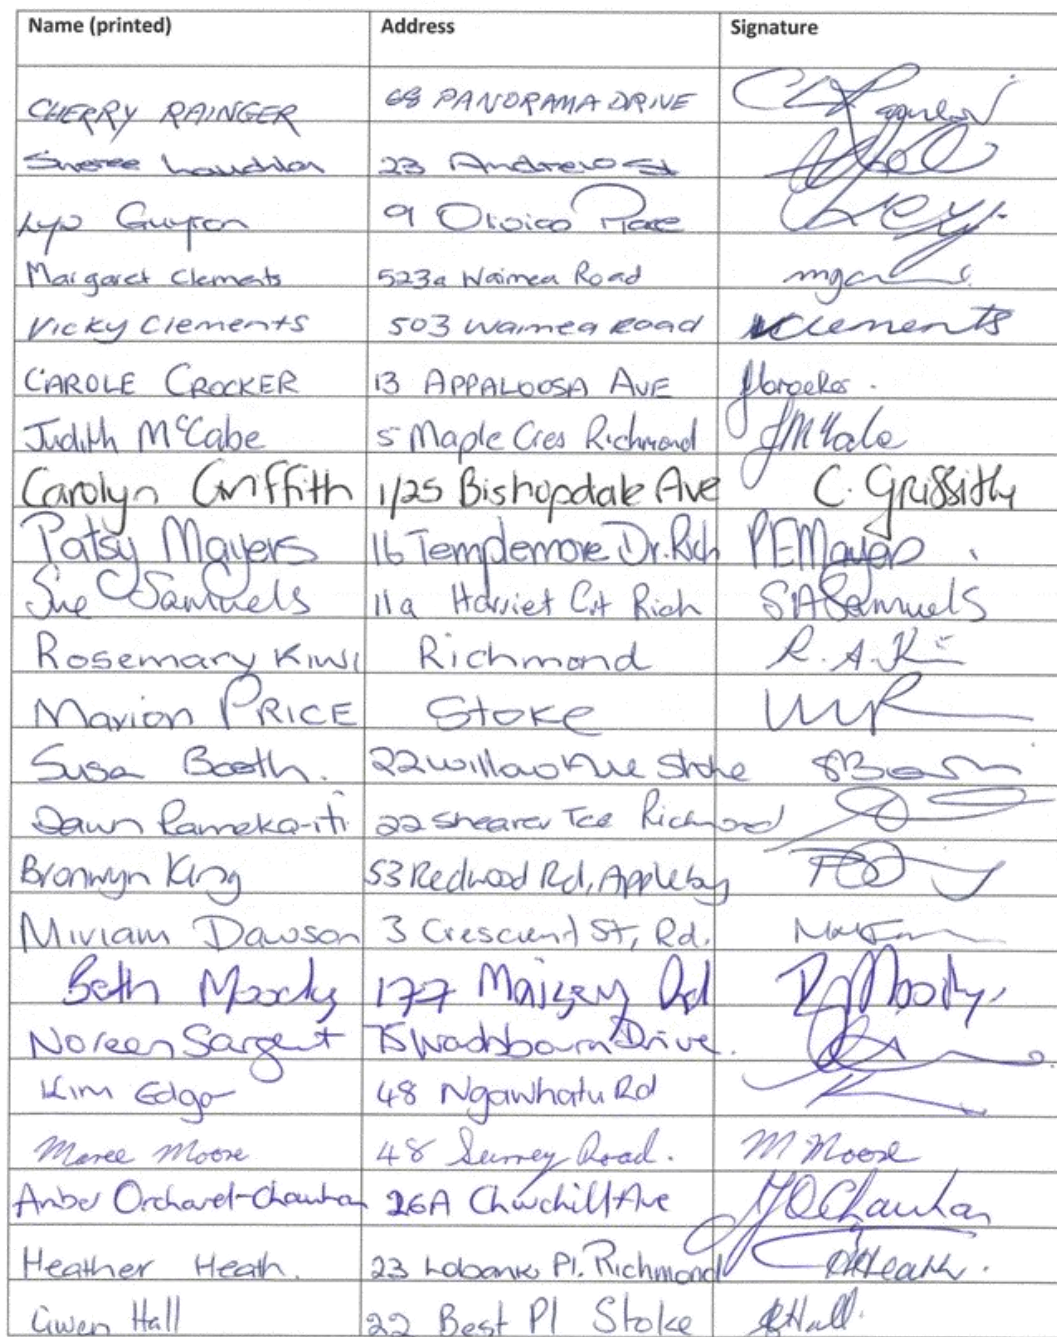 Name (printed) Address Signature
CHERRY RAINGER 68 PANORAMA DRIVE
23 Andrew St
9 Place
Margaret Clements 523a Waimea Road
Vicky Clements 503 Waimea Road VClements
CAROLE CROCKER 13 APPALOOSA AVE
Judith McCabe 5 Maple Cres Richmond JMcCabe
Carolyn Griffith 1/25 Bishopdale Ave C. Griffith
Patsy Mayers 16 Templemore Dr. Rich PEMayers
Sue Samuels 11a Harriet Crt Rich SASamuels
Rosemary Kiwi Richmond R. A. Ki
Marion PRICE Stoke
Susa Booth. 22 Willow Ave Stoke
Dawn Rameka-iti 22 Shearer Tce Richmond
Bronwyn King 53 Redwood Rd, Appleby
Miriam Dawson 3 Crescent St, Rd.
Beth Moody 177 Maisey Rd Moody.
Noreen Sargent 75 Washbourn Drive.
Kim Edgar 48 Ngawhatu Rd
Maree Moore 48 Surrey Road. M Moore
Amber Orchard-Chauhan 26A Churchill Ave Chauhan
Heather Heath. 23 Pl. Richmond Heath.
Gwen Hall 22 Best Pl Stoke GHall.